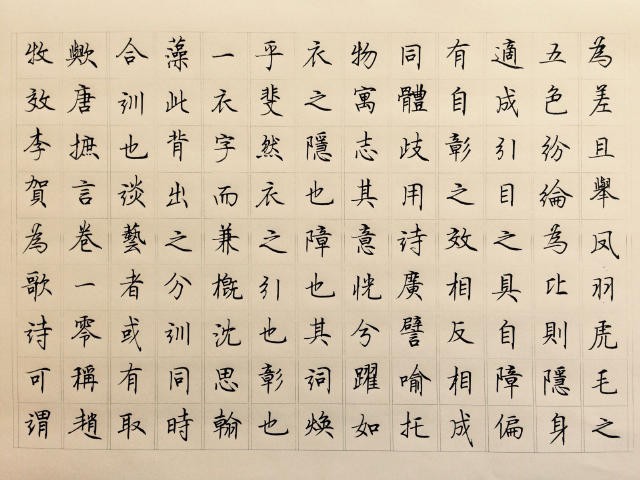 為差且舉凤羽虎毛之
五色紛綸為比則隱身
適成引目之具自障偏
有自彰之效相反相成
同體歧用詩廣譬喻托
物寓志其意恍兮躍如
衣之隱也障也其詞煥
乎斐然衣之引也彰也
一衣字而兼概沈思翰
藻此背出之分訓同時
合訓也談藝者或有取
歟唐摭言卷一零稱趙
牧效李賀為歌詩可謂